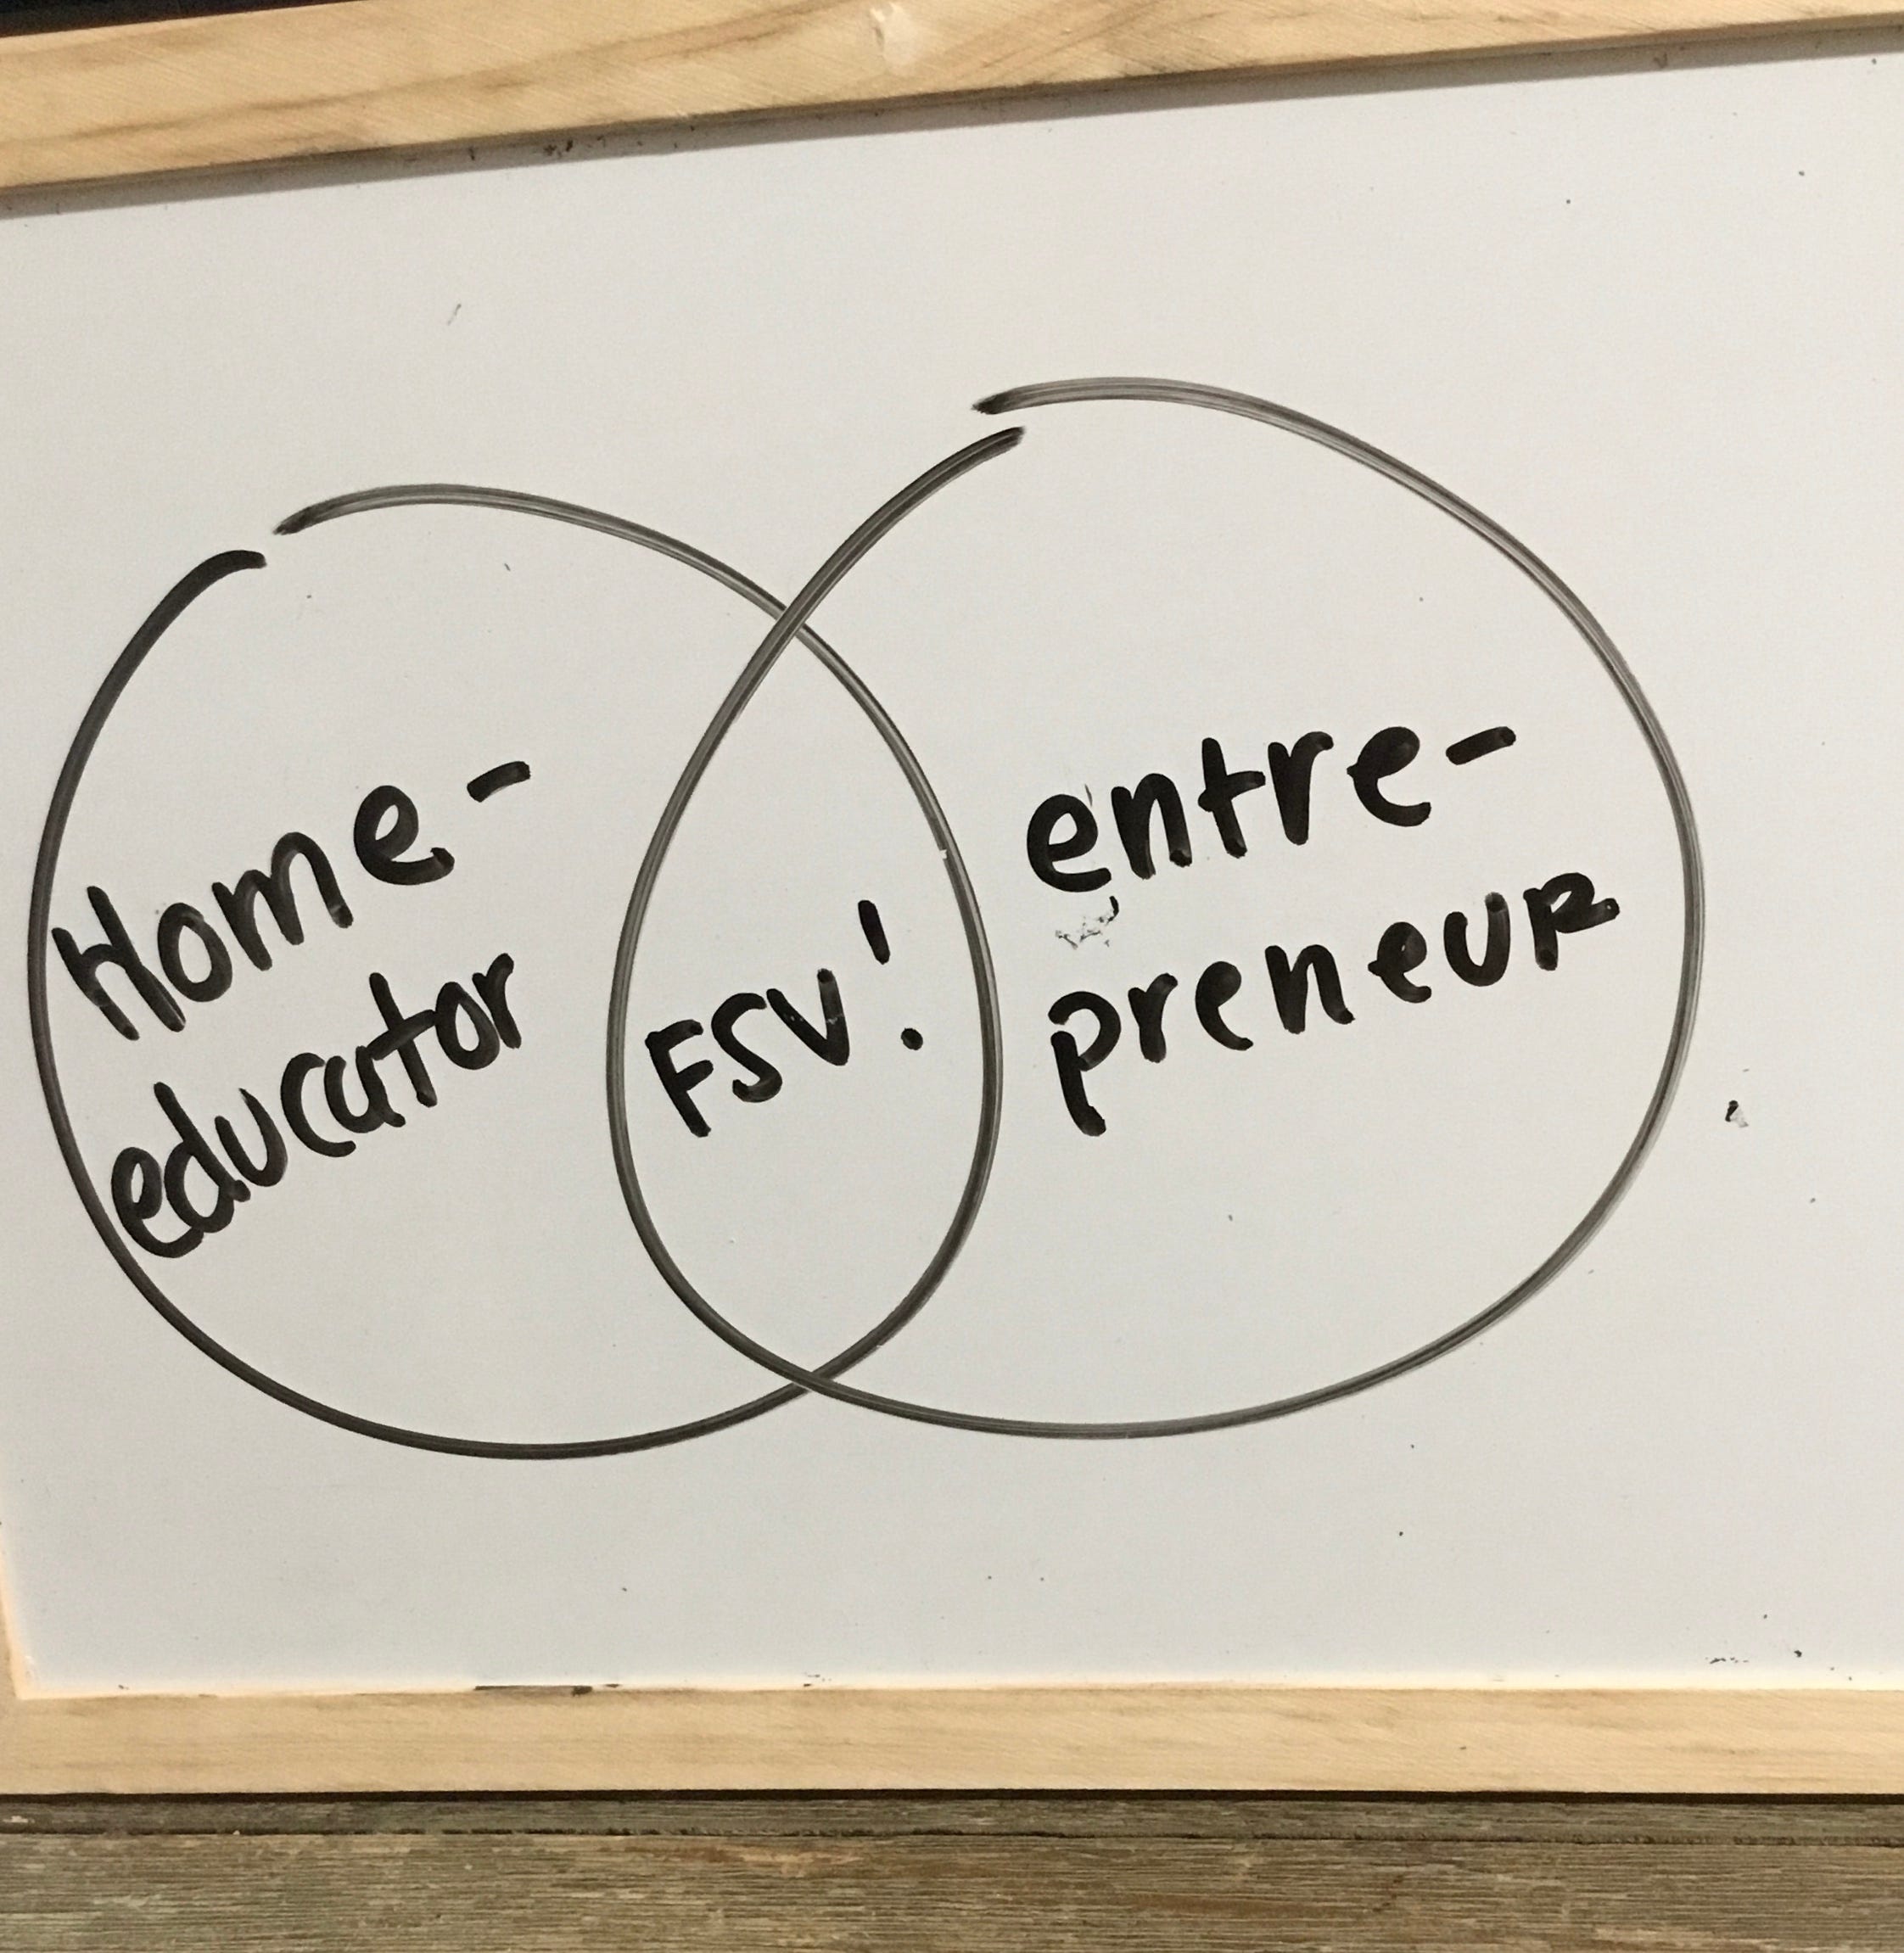 Home-
educator
FSV!
entre-
preneur